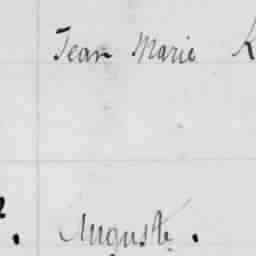 Jean Marie
Auguste.